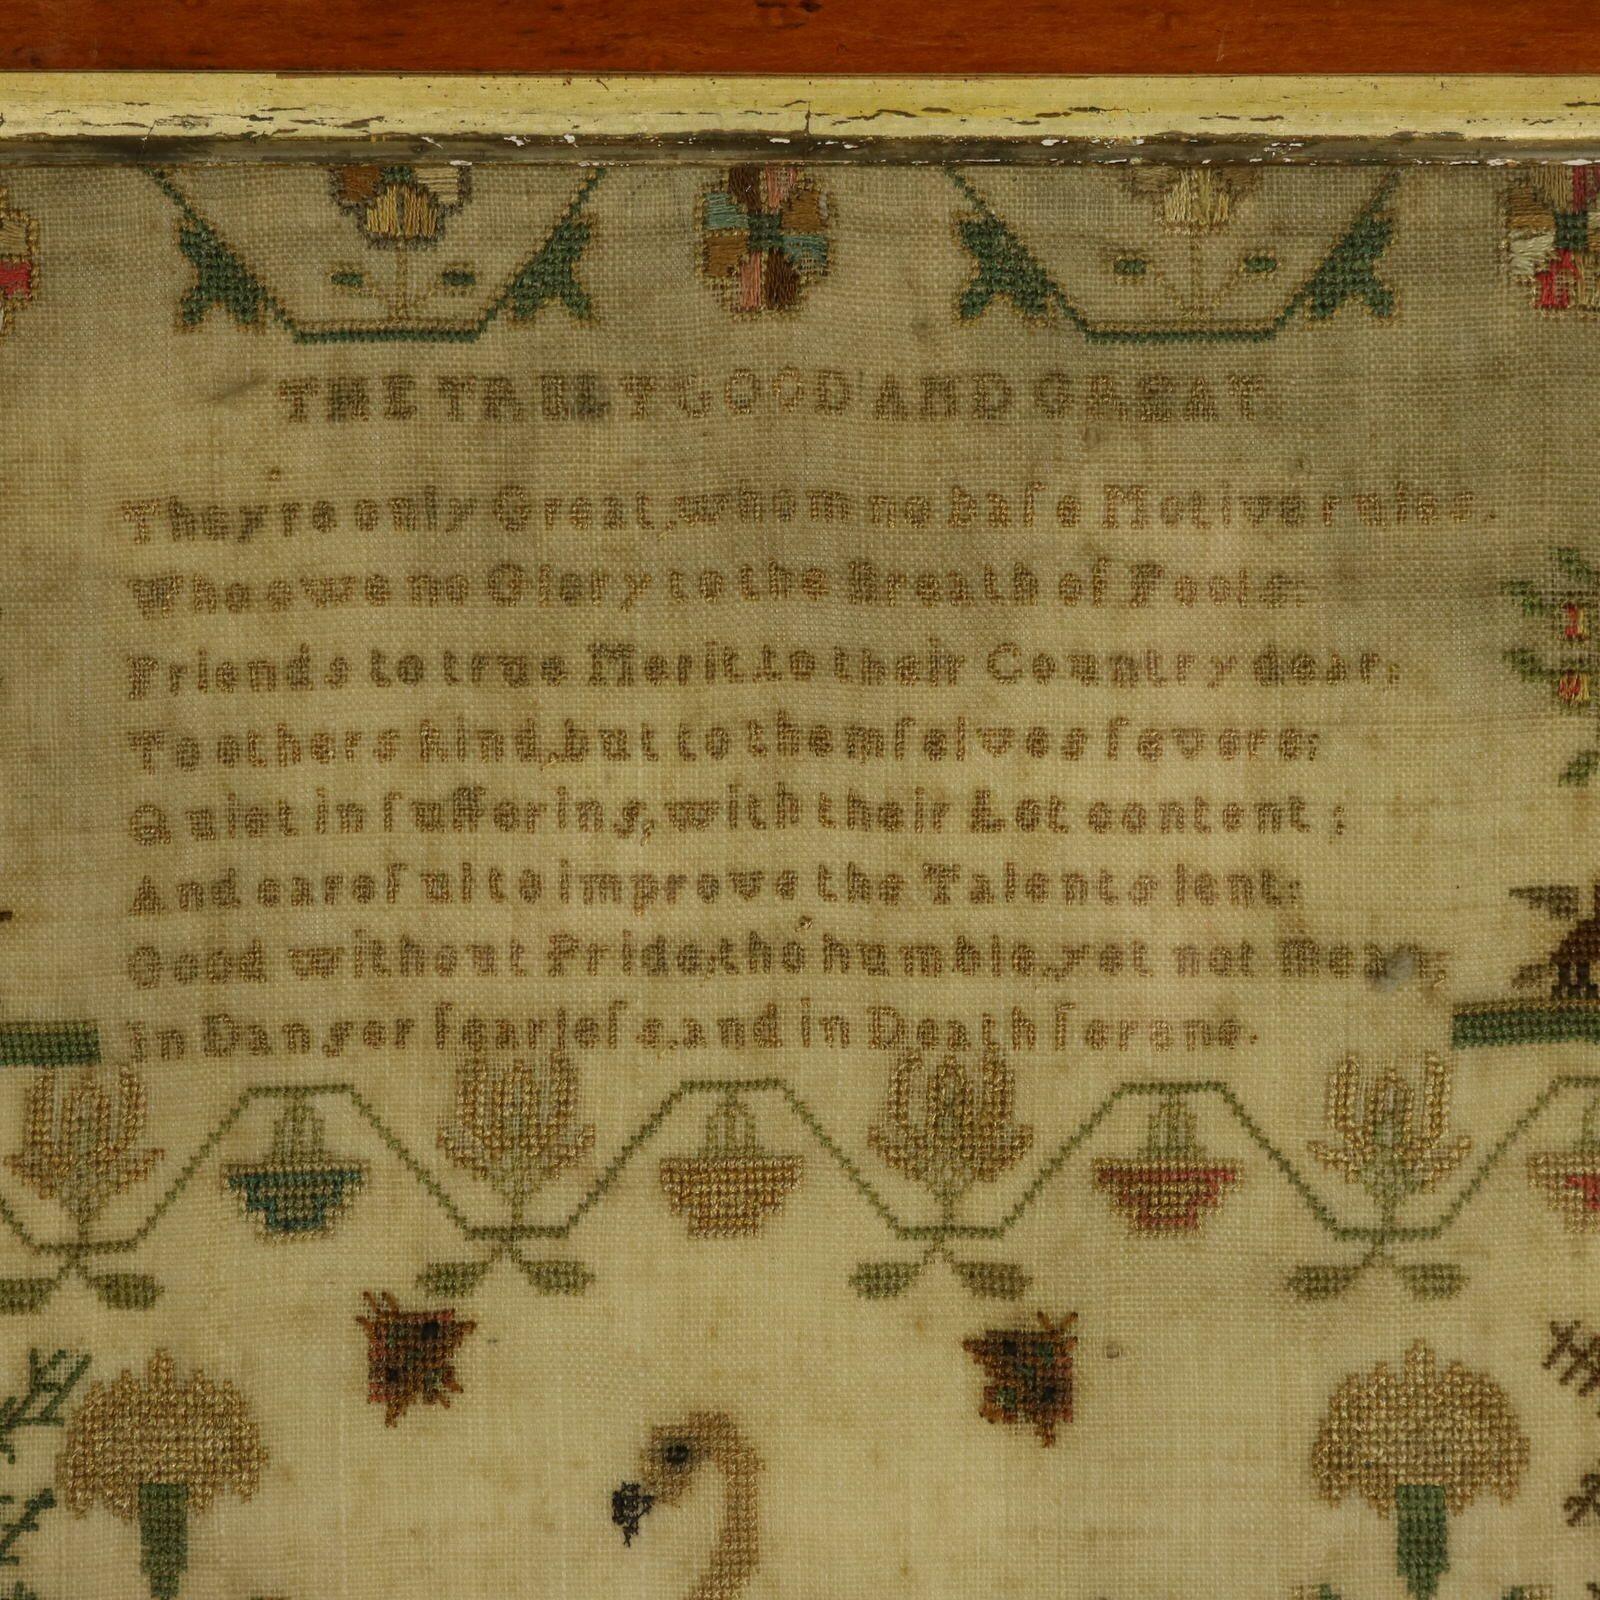 THE TRULY GOOD AND GREAT
They're only Great, whom no baſe Motive rules.
Who owe no Glory to the Breath of Fools:
Friends to true Merit, to their Country dear;
To others kind, but to themſelves ſevere;
Quiet in ſuffering, with their Lot content;
And careful to improve the Talents lent:
Good without Pride, tho' humble, yet not Mean,
In Danger fearleſs, and in Death ſerene.